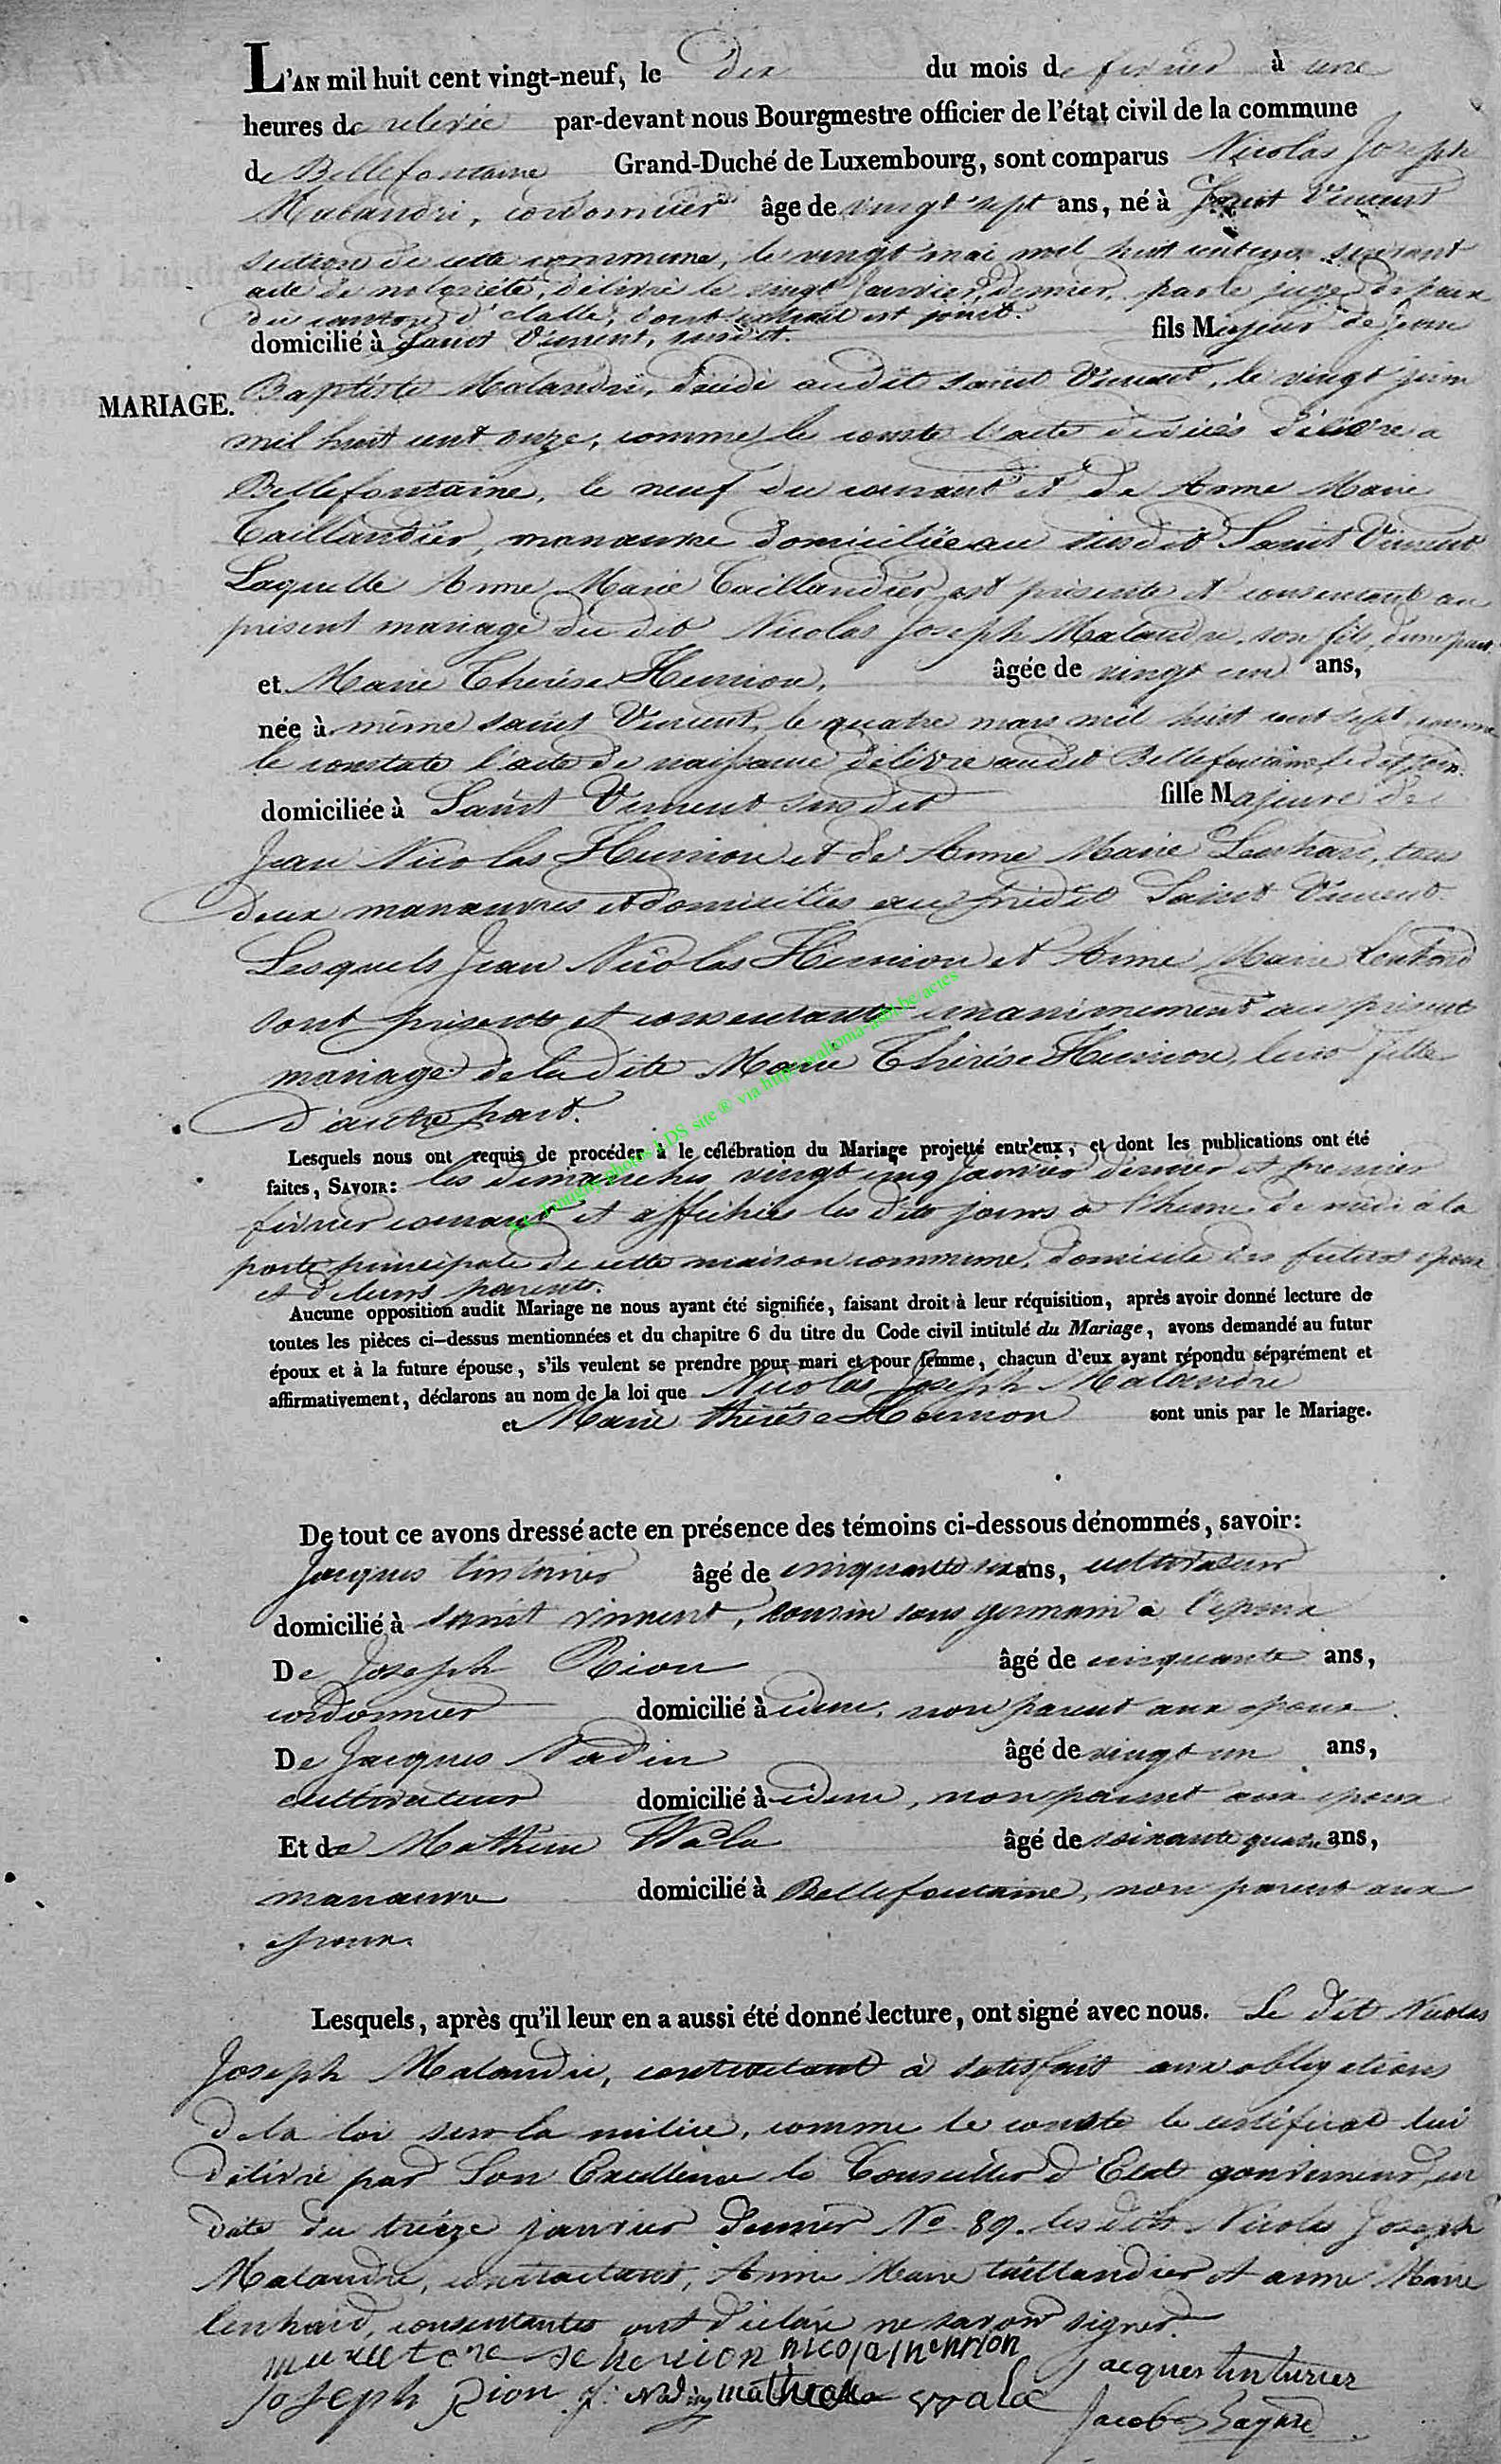 L'AN mil huit cent vingt-neuf, le dix du mois de février à une
heures de relevée par-devant nous Bourgmestre officier de l'état civil de la commune
de Bellefontaine Grand-Duché de Luxembourg, sont comparus Nicolas Joseph
Malandri, cordonnier âge de vingt sept ans, né à Saint Vincent
section de cette commune, le vingt mai mil huit cent suivant
acte de notoriété, délivré le vingt Janvier dernier, par le juge de paix
du canton d'Etalle, dont extrait est joint.
domicilié à Saint Vincent, susdit. fils Majeur de Jean
MARIAGE.
Baptiste Malandri, décédé audit saint Vincent, le vingt juin
mil huit cent onze, comme le conste l'acte de décès délivré a
Bellefontaine, le neuf du courant et de Anne Marie
Taillandier, manœuvre domiciliée au susdit Saint Vincent
Laquelle Anne Marie Taillandier est présente et consentant au
présent mariage du dit Nicolas Joseph Malandri son fils, d'une part.
et Marie Thérèse Henrion, âgée de vingt un ans,
née à même saint Vincent, le quatre mars mil huit cent sept comme
le constate l'acte de naissance délivré audit Bellefontaine, le dit jour.
domiciliée à Saint Vincent susdit fille Majeure de
Jean Nicolas Henrion et de Anne Marie Lenhard, tous
deux manœuvres et domiciliés au susdit Saint Vincent.
Lesquels Jean Nicolas Henrion et Anne Marie Lenhard
sont présents et consentants unanimement au présent
mariage de la dite Marie Thérèse Henrion leur fille
d'autre part.
Lesquels nous ont requis de procéder à le célébration du Mariage projetté entr'eux, et dont les publications ont été
faites, SAVOIR: les dimanches vingt cinq Janvier dernier et premier
février courant et affichées les dits jours a l'heure de midi à la
porte principale de cette maison commune, domicile des futurs époux
et de leurs parents.
Aucune opposition audit Mariage ne nous ayant été signifiée, faisant droit à leur réquisition, après avoir donné lecture de
toutes les pièces ci-dessus mentionnées et du chapitre 6 du titre du Code civil intitulé du Mariage, avons demandé au futur
époux et à la future épouse, s'ils veulent se prendre pour mari et pour femme, chacun d'eux ayant répondu séparément et
affirmativement, déclarons au nom de la loi que Nicolas Joseph Malandri
et Marie thérèse Henrion sont unis par le Mariage.
De tout ce avons dressé acte en présence des témoins ci-dessous dénommés, savoir:
Jacques tinturier âgé de cinquante six ans, cultivateur
domicilié à saint vincent, cousin sous germain a l'epoux
De Joseph Rion âgé de cinquante ans,
cordonnier domicilié à idem, non parent aux epoux.
De Jacques Nadin âgé de vingt un ans,
cultivateur domicilié à idem, non parent aux epoux
Et de Mathieu Wala âgé de soixante quatre ans,
manœuvre domicilié à Bellefontaine, non parent aux
epoux.
Lesquels, après qu'il leur en a aussi été donné lecture, ont signé avec nous. Le dit Nicolas
Joseph Malandri, contractant a satisfait aux obligations
de la loi sur la milice, comme le conste le certificat lui
délivré par Son Excellence le Conseiller d'Etat gouverneur, en
date du treize janvier dernier No 89. les dits Nicolas Joseph
Malandri, contractant, Anne Marie taillandier et anne Marie
lenhard, consentantes ont déclaré ne savoir signer.
henrion nicolas henrion
Jacques tinturier
Joseph Rion J. Nadin mathieu wala
Jacob
A.E. photos LDS site ® via http://wallonia-asbl.be/actes